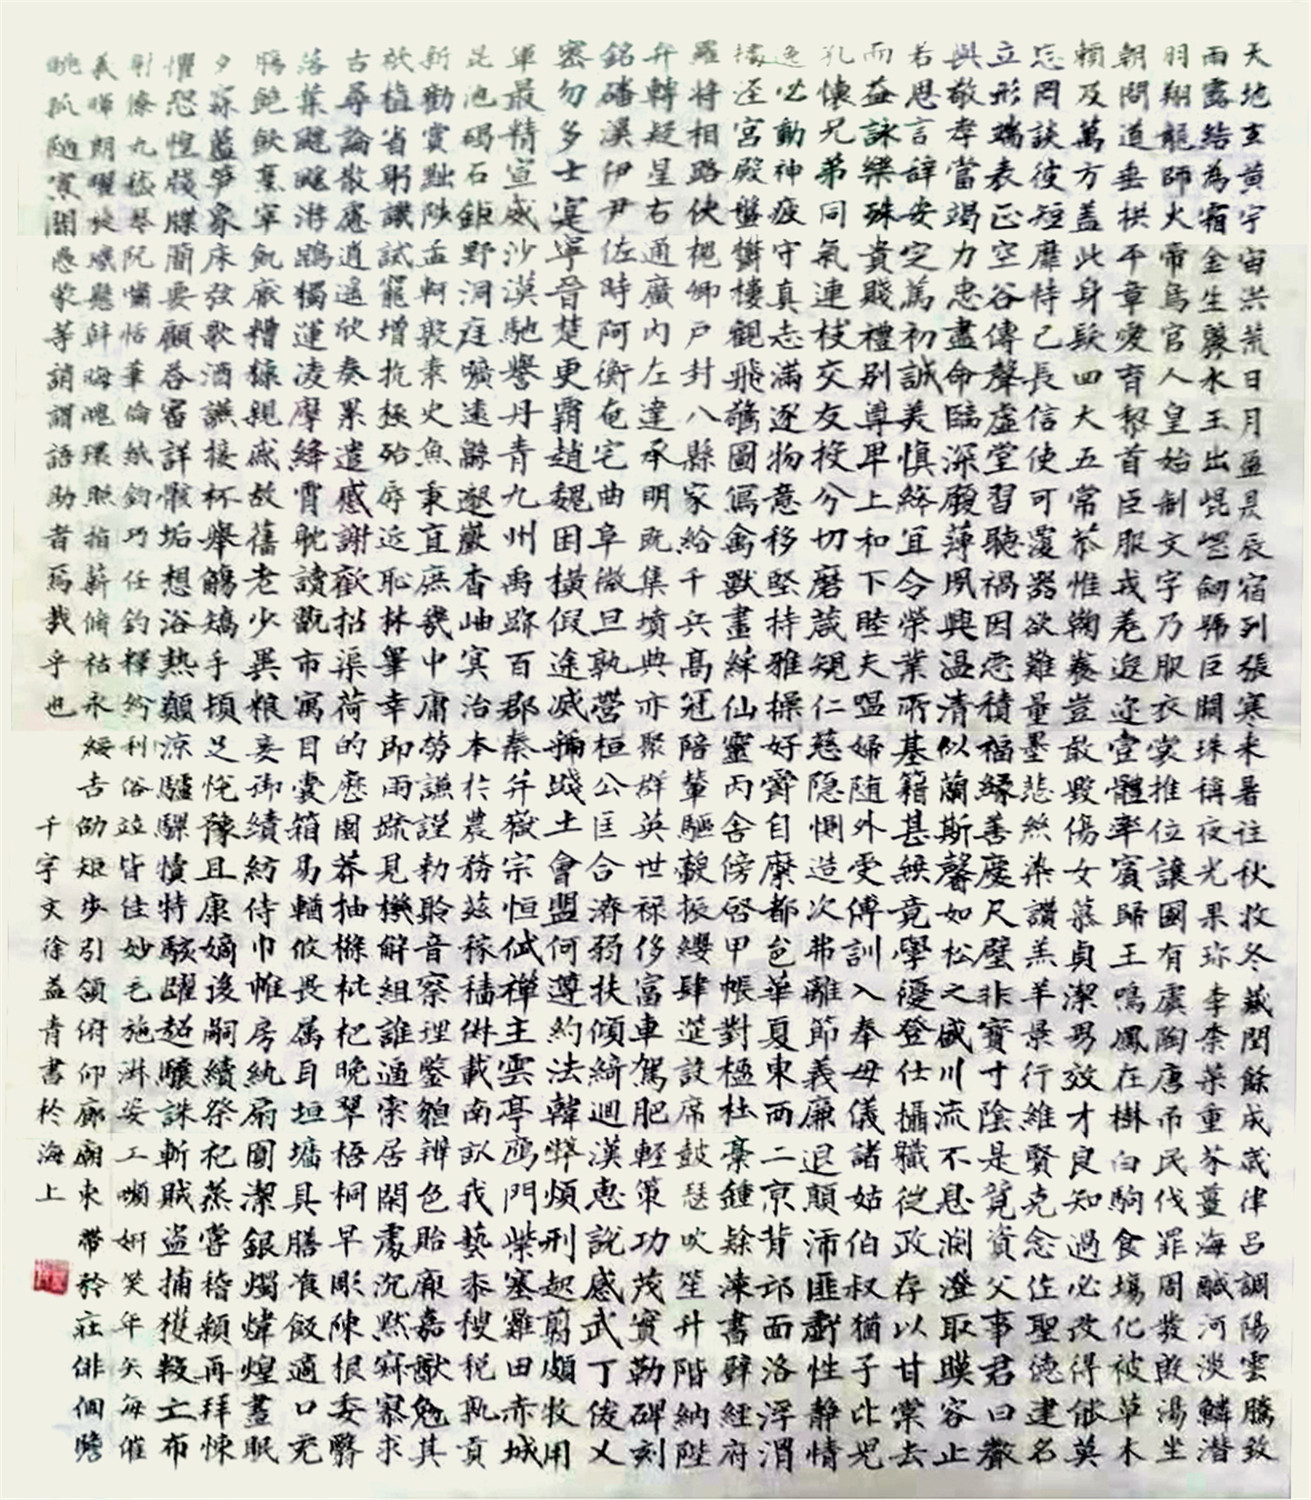 天地玄黄宇宙洪荒日月盈昃辰宿列張寒来暑往秋收冬藏閏餘成歲律呂調陽雲騰致
雨露結為霜金生麗水玉出崐崗劒號巨闕珠稱夜光果珍李柰菜重芥薑海鹹河淡鱗潜
羽翔龍師火帝鳥官人皇始制文字乃服衣裳推位讓國有虞陶唐吊民伐罪周發殷湯坐
朝問道垂拱平章愛育黎首臣服戎羌遐迩壹體率賓歸王鳴鳳在樹白駒食場化被草木
賴及萬方蓋此身髮四大五常恭惟鞠養豈敢毀傷女慕貞潔男效才良知過必改得能莫
忘罔談彼短靡恃己長信使可覆器欲難量墨悲絲染讚羔羊景行維賢克念作聖德建名
立形端表正空谷傳聲虛堂習聽禍因惡積福緣善慶尺璧非寶寸陰是競資父事君曰嚴
與敬孝當竭力忠盡命臨深履薄夙興溫清似蘭斯馨如松之盛川流不息淵澄取暎容止
若思言辭安定篤初誠美慎終宜令榮業所基籍甚無竟學優登仕攝職從政存以甘棠去
而益詠樂殊貴賤禮別尊卑上和下睦夫唱婦随外受傅訓入奉母儀諸姑伯叔猶子比兒
孔懷兄弟同氣連枝交友投分切磨箴規仁慈隐惻造次弗離節義廉退顛沛匪虧性靜情
逸心動神疲守真志滿逐物意移堅持雅操好爵自縻都邑華夏東西二京背邙面洛浮渭
據涇宮殿盤鬱樓觀飛驚圖寫禽獸畫綵仙靈丙舍傍啓甲帳對楹杜稾鍾隸漆書壁經府
羅將相路俠槐卿戶封八縣家給千兵高冠陪輦驅轂振纓肆筵設席鼓瑟吹笙升階納陛
弁轉疑星右通廣內左達承明既集墳典亦聚群英世祿侈富車駕肥輕策功茂實勒碑刻
銘磻溪伊尹佐時阿衡奄宅曲阜微旦孰營桓公匡合濟弱扶傾綺迴漢惠說感武丁俊乂
密勿多士寔寧晉楚更霸趙魏困橫假途滅虢踐土會盟何遵約法韓弊煩刑起翦頗牧用
軍最精宣威沙漠馳譽丹青九州禹跡百郡秦并嶽宗恒岱禪主雲亭鴈門紫塞雞田赤城
昆池碣石鉅野洞庭曠遠緜邈巖杳岫冥治本於農務茲稼穡俶載南畝我藝黍稷稅孰貢
新勸賞黜陟孟軻敦素史魚秉直庶幾中庸勞謙謹勅聆音察理鑒貌辨色貽厥嘉猷勉其
祗植省躬譏誡寵增抗極殆辱近恥林皋幸即兩疏見機解組誰逼索居閑處沉默寂寥求
古尋論散慮逍遙欣奏累遣慼謝歡招渠荷的歷園莽抽條枇杷晚翠梧桐早彫陳根委翳
落葉飄颻游鵾獨運凌摩絳霄耽讀翫市寓目囊箱易輶攸畏属耳垣墻具膳飡飯適口充
腸飽飫烹宰飢厭糟糠親戚故舊老少異粮妾御績紡侍巾帷房紈扇圓潔銀燭煒煌晝眠
夕寐藍笋象床弦歌酒讌接杯舉觴矯手頓足悅豫且康嫡後嗣續祭祀蒸嘗稽顙再拜悚
懼恐惶牋牒簡要顧答審詳骸垢想浴熱願涼驢騾犢特駭躍超驤誅斬賊盜捕獲叛亡布
射僚丸嵇琴阮嘯恬筆倫紙鈞巧任釣釋紛利俗並皆佳妙毛施淑姿工嚬妍笑年矢每催
羲暉朗曜旋璣懸斡晦魄環照指薪修祜永綏吉劭矩步引領俯仰廊廟束帶矜莊俳佪瞻
眺孤陋寡聞愚蒙等誚謂語助者焉哉乎也
千字文徐益青書於海上